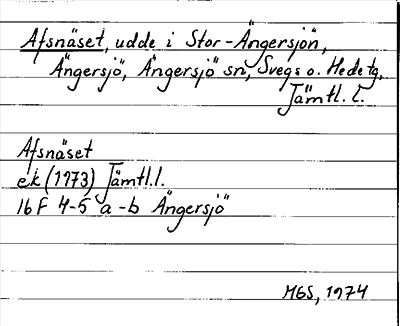 Afsnäset, udde i Stor-Ängersjön,
Ängersjö, Ängersjö sn, Svegs o. Hede tg,
Jämtl. l.
Afsnäset
ek (1973) Jämtl. l.
16 F 4-5 a-b Ängersjö
MGS, 1974